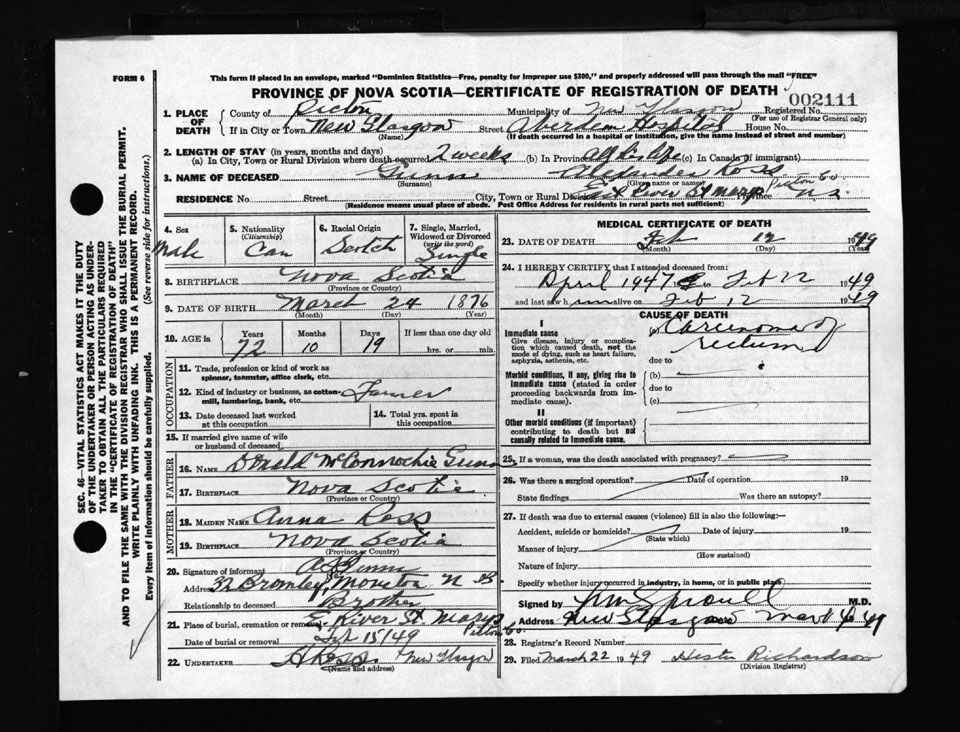 FORM 6
This form if placed in an envelope, marked "Dominion Statistics—Free, penalty for improper use $300," and properly addressed will pass through the mail "FREE"
PROVINCE OF NOVA SCOTIA—CERTIFICATE OF REGISTRATION OF DEATH
002111
1. PLACE OF DEATH
County of Pictou Municipality of New Glasgow Registered No.
(For use of Registrar General only)
If in City or Town New Glasgow Street Aberdeen Hospital House No.
(Name) (If death occurred in a hospital or institution, give the name instead of street and number)
2. LENGTH OF STAY (in years, months and days)
(a) In City, Town or Rural Division where death occurred 2 weeks (b) In Province All his life (c) In Canada (if immigrant)
3. NAME OF DECEASED Gunn Alexander Ross
(Surname) (Given name or names)
RESIDENCE No. Street City, Town or Rural Division East River St Marys Pictou Co. Province N.S.
(Residence means usual place of abode. Post Office Address for residents in rural parts not sufficient)
4. Sex Male
5. Nationality (Citizenship) Can
6. Racial Origin Scotch
7. Single, Married, Widowed or Divorced (write the word) Single
8. BIRTHPLACE Nova Scotia
(Province or Country)
9. DATE OF BIRTH March 24 1876
(Month) (Day) (Year)
10. AGE in Years 72 Months 10 Days 19 If less than one day old hrs. or min.
OCCUPATION
11. Trade, profession or kind of work as spinner, teamster, office clerk, etc.
12. Kind of industry or business, as cotton-mill, lumbering, bank, etc. Farmer
13. Date deceased last worked at this occupation
14. Total yrs. spent in this occupation
15. If married give name of wife or husband of deceased
FATHER
16. Name Donald McConnochie Gunn
17. BIRTHPLACE Nova Scotia
(Province or Country)
MOTHER
18. MAIDEN NAME Anna Ross
19. BIRTHPLACE Nova Scotia
(Province or Country)
20. Signature of informant Gunn
Address 32 Bromley, Moncton N.B.
Relationship to deceased Brother
21. Place of burial, cremation or removal E. River St Marys Pictou Co.
Date of burial or removal Feb 15/49
22. UNDERTAKER New Glasgow
(Name and address)
MEDICAL CERTIFICATE OF DEATH
23. DATE OF DEATH Feb 12 1949
(Month) (Day) (Year)
24. I HEREBY CERTIFY that I attended deceased from:
April 1947 to Feb 22 1949
and last saw him alive on Feb 12 1949
CAUSE OF DEATH
I
Immediate cause
Give disease, injury or complication which caused death, not the mode of dying, such as heart failure, asphyxia, asthenia, etc.
(a) Carcinoma of rectum
due to
Morbid conditions, if any, giving rise to immediate cause (stated in order proceeding backwards from immediate cause).
(b)
due to
(c)
II
Other morbid conditions (if important) contributing to death but not causally related to immediate cause.
25. If a woman, was the death associated with pregnancy?
26. Was there a surgical operation? Date of operation 19
State findings Was there an autopsy?
27. If death was due to external causes (violence) fill in also the following:—
Accident, suicide or homicide? Date of injury 19
(State which)
Manner of injury
(How sustained)
Nature of injury
Specify whether injury occurred in industry, in home, or in public place
Signed by Sproull M.D.
Address New Glasgow
28. Registrar's Record Number
29. Filed March 22 1949 Hester Richardson
(Division Registrar)
SEC. 46—VITAL STATISTICS ACT MAKES IT THE DUTY
OF THE UNDERTAKER OR PERSON ACTING AS UNDER-
TAKER TO OBTAIN ALL THE PARTICULARS REQUIRED
IN THE "CERTIFICATE OF REGISTRATION OF DEATH"
AND TO FILE THE SAME WITH THE DIVISION REGISTRAR WHO SHALL ISSUE THE BURIAL PERMIT.
WRITE PLAINLY WITH UNFADING INK. THIS IS A PERMANENT RECORD.
Every item of information should be carefully supplied. (See reverse side for instructions.)